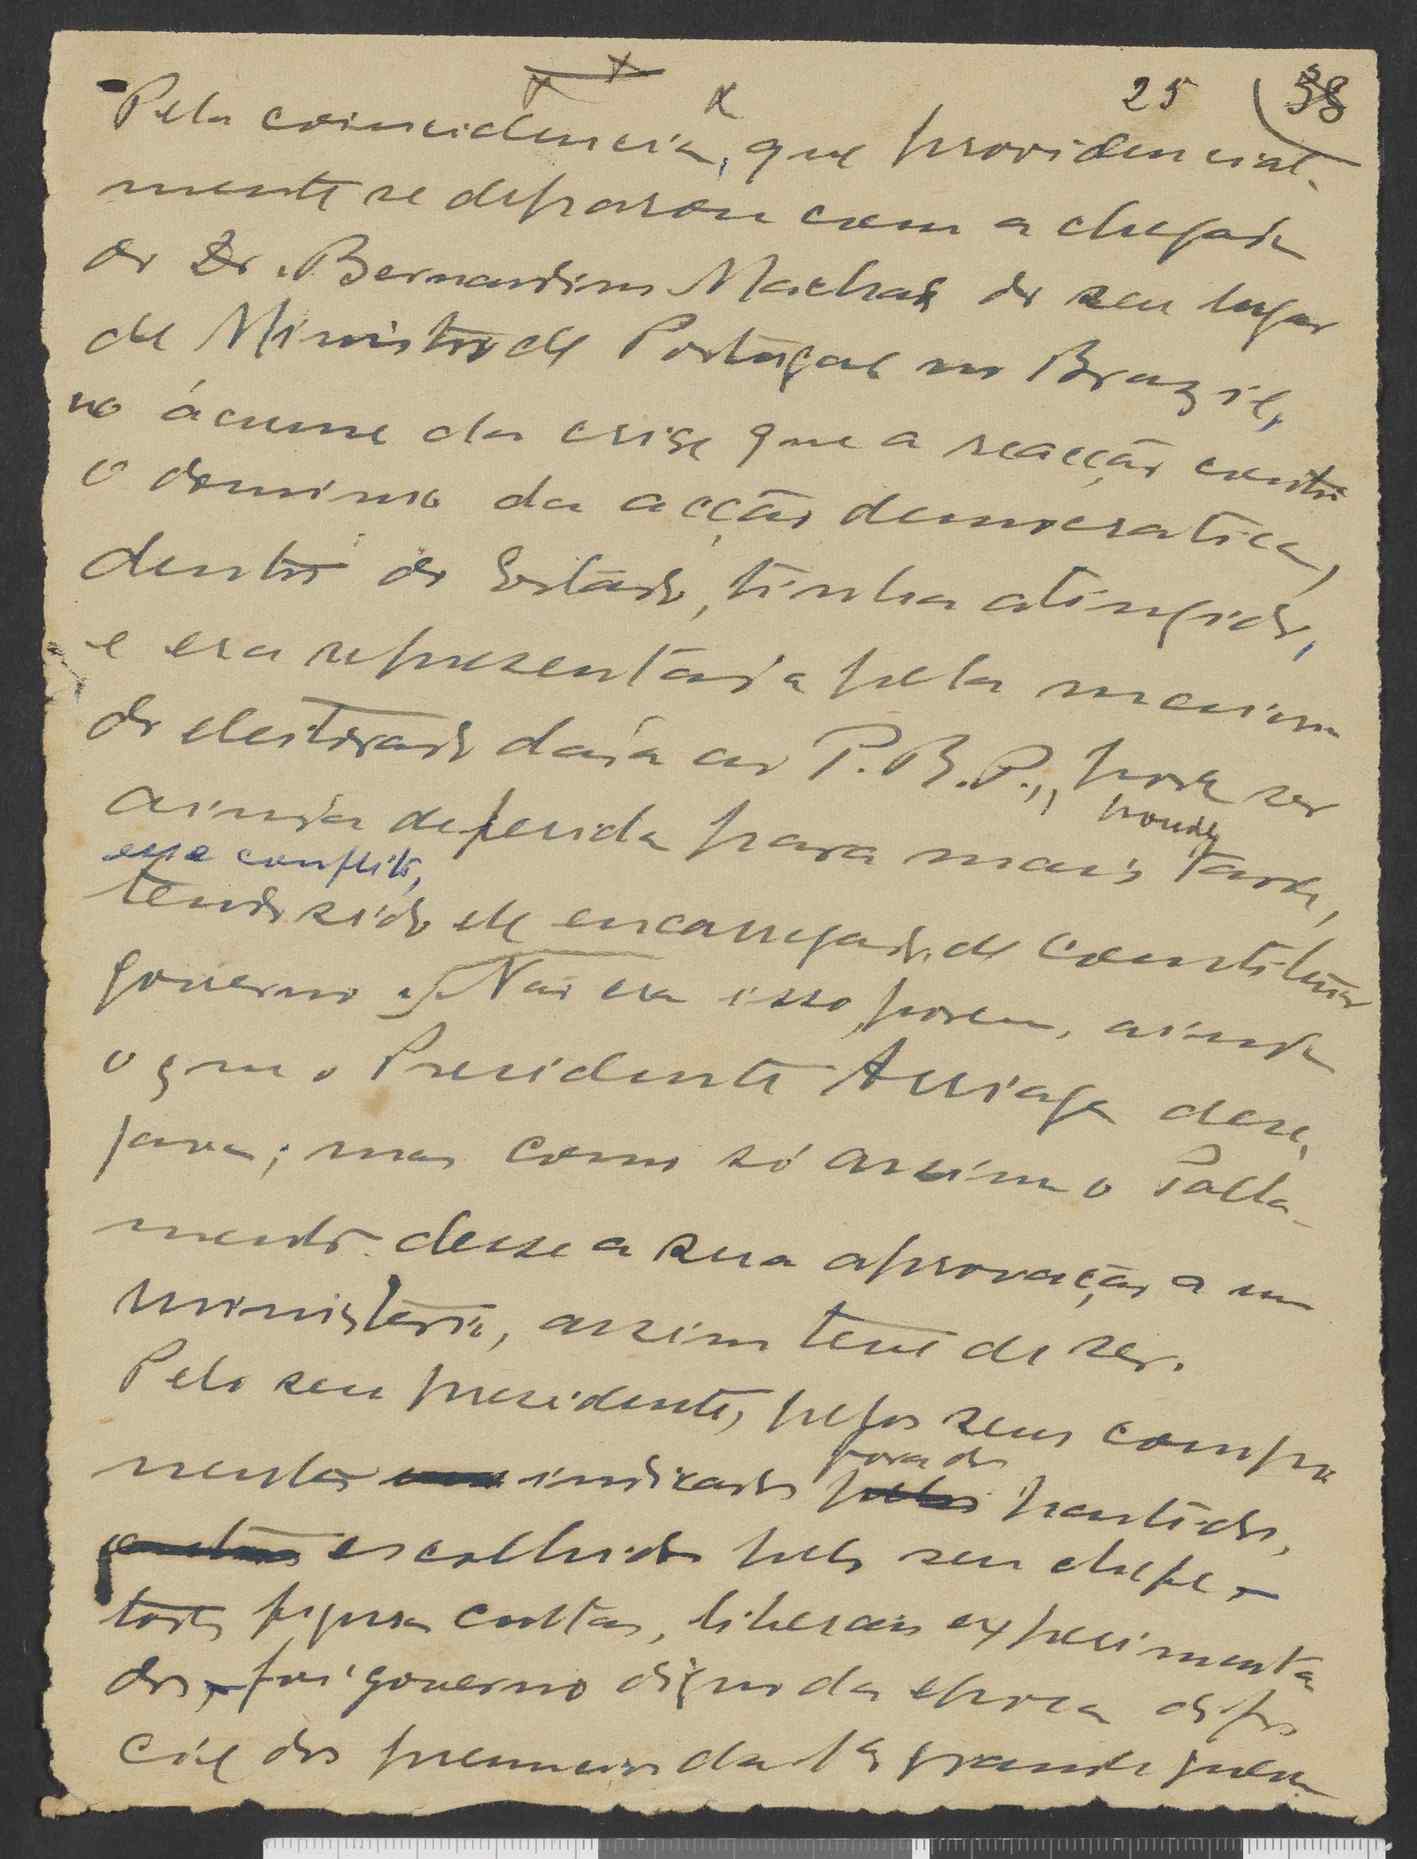 25 38
Pela coincidencia, que providencial-
mente se deparou com a chegada
do Dr. Bernardino Machado do seu lugar
de Ministro de Portugal no Brazil,
no ácume da crise que a reacção contra
o dominio da acção democratica,
dentro do Estado, tinha atingido,
e era representada pela maioria
do eleitorado dada ao P.R.P., poude ser
ainda deferida para mais tarde,
esse conflito,
tendo sido ele encarregado de constituir
governo. Não era isso, porem, ainda
o que o Presidente Arriaga dese-
java; mas como só assim o Parla-
mento desse a sua aprovação a um
ministerio, assim teve de ser.
Pelo seu presidente, pelos seus compo
nentes indicados fora de partidos,
escolhidos pelo seu chefe, -
todos figuras cultas, liberais experimenta
dos, - foi governo digno da epoca difi
cil dos preliminares da 1ª grande guerra